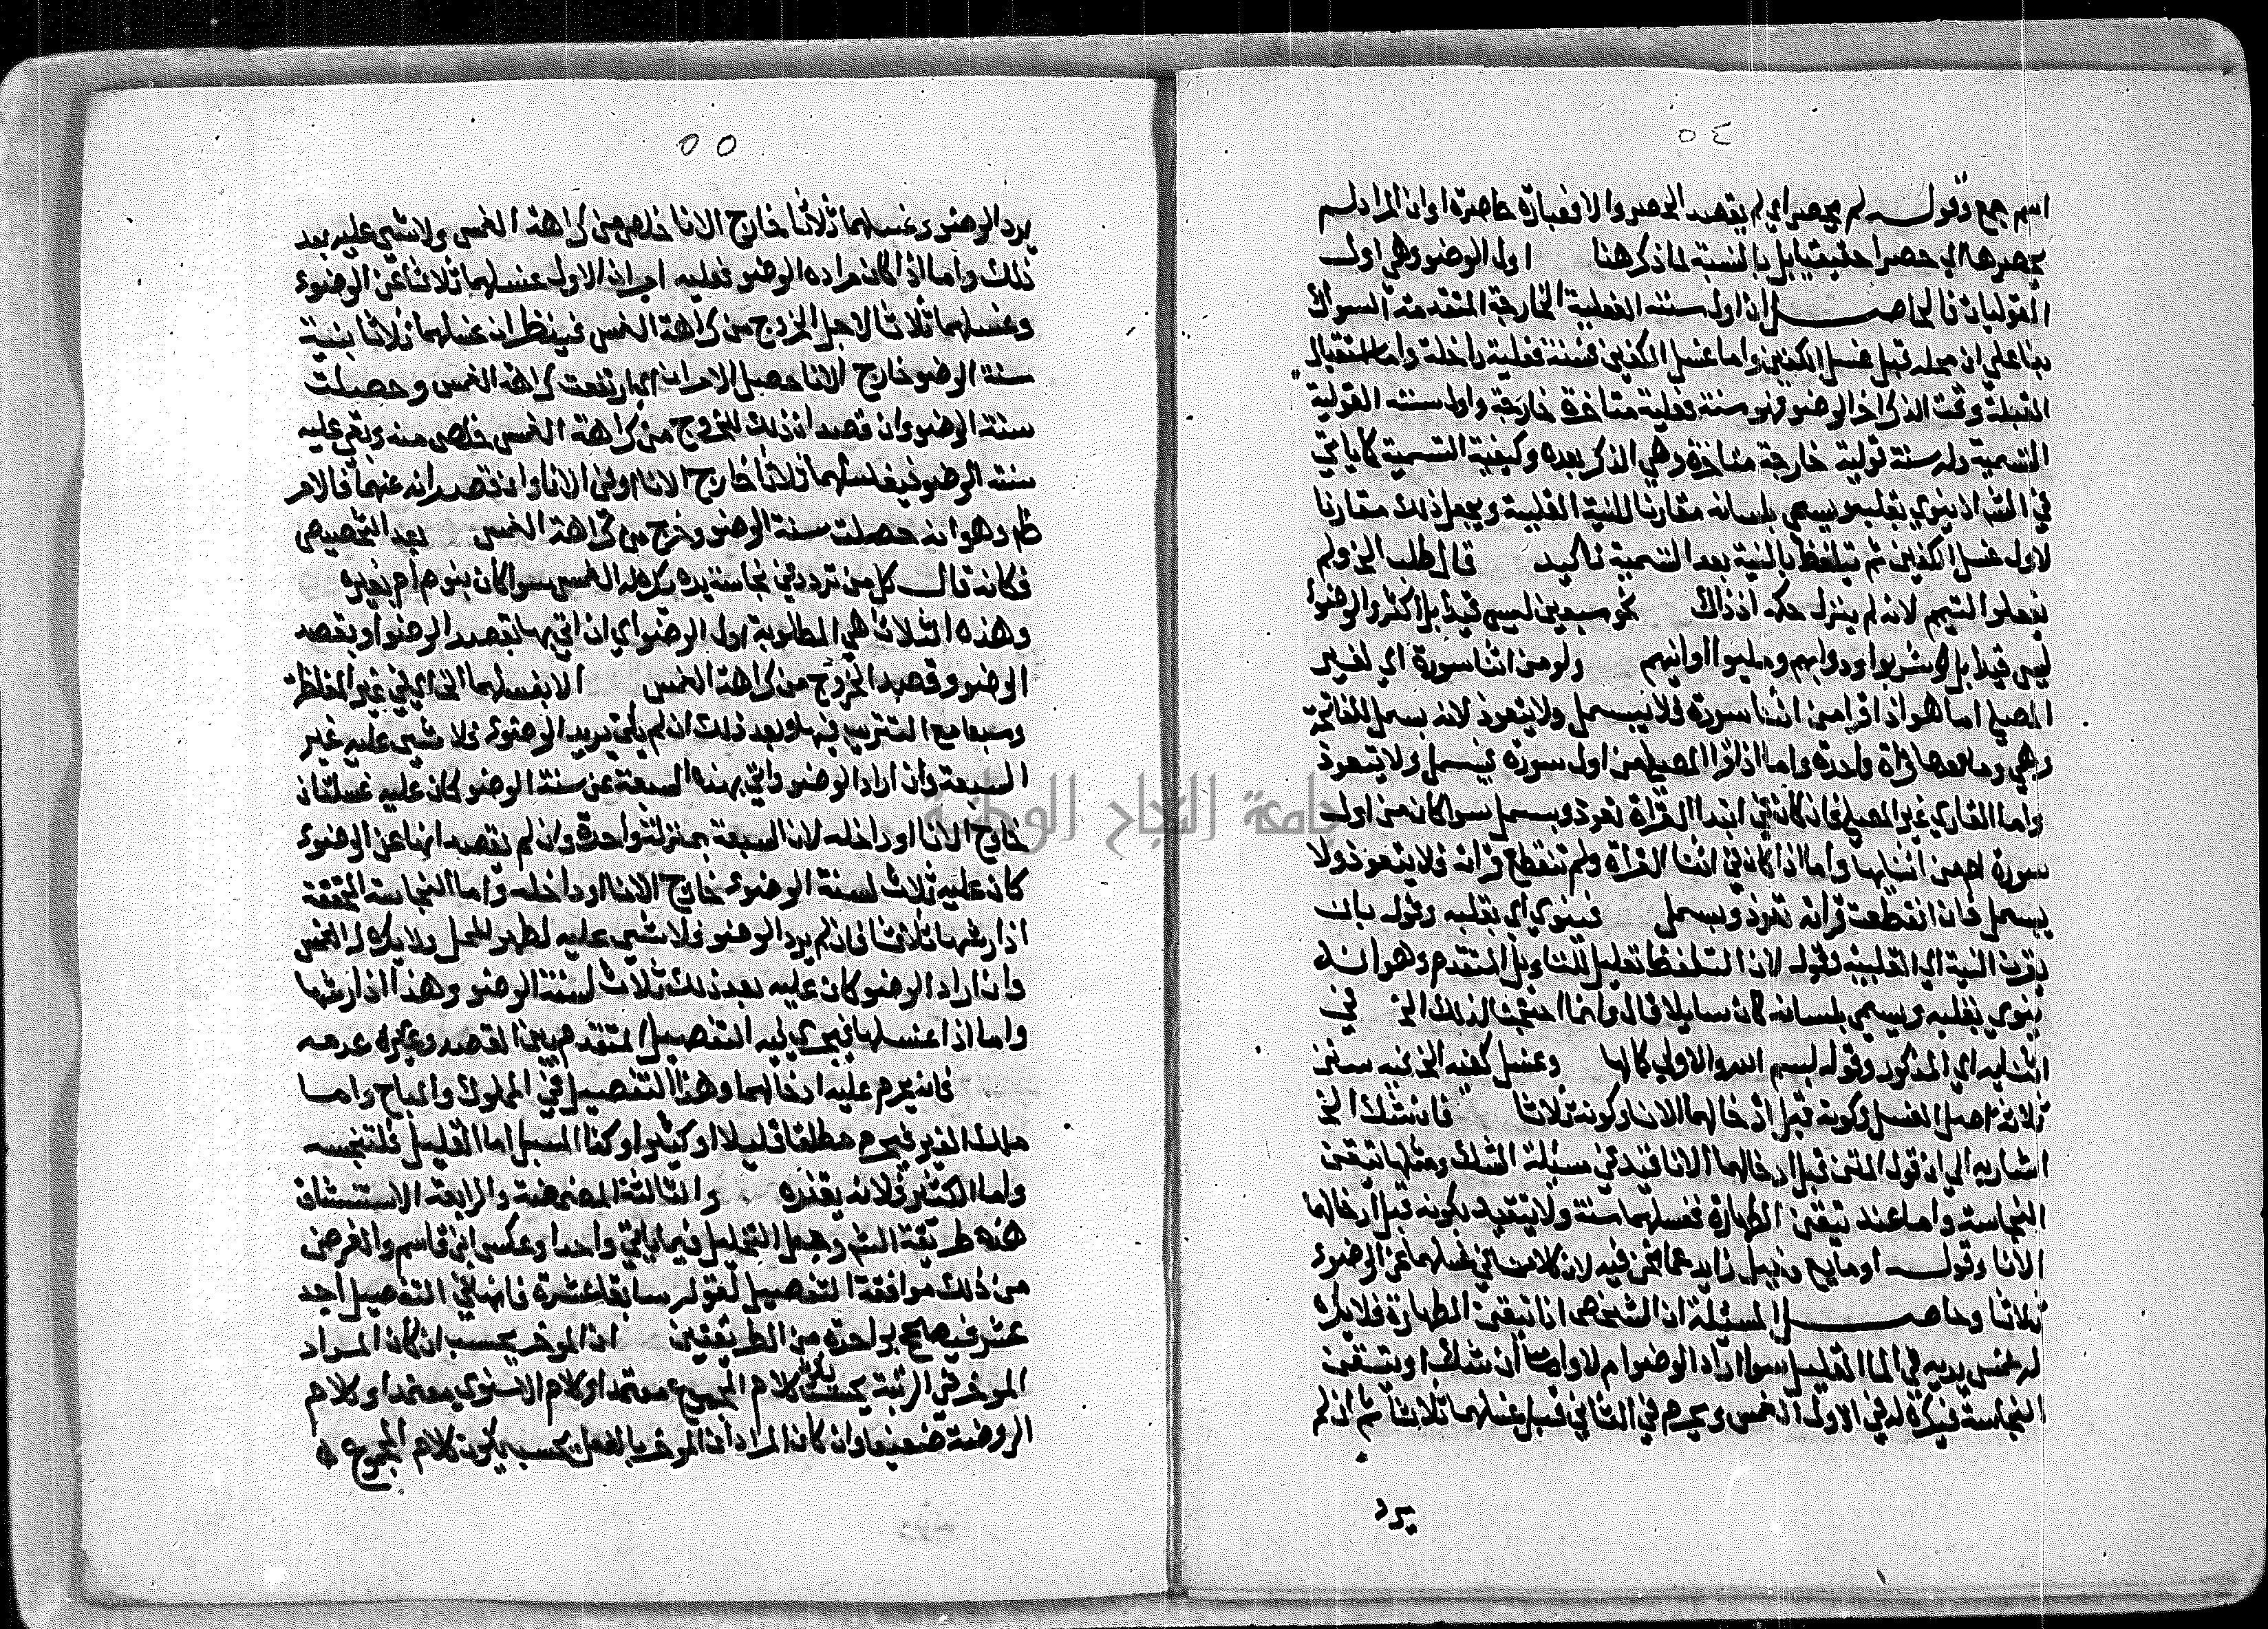 ٥٤
اسم جمع وقوله لم يحصر اي لم يقصد الحصر والا فعبارة حاصرة او ان المراد لم
يحصرها الي حصرا حقيقيا بل بالنسبة لما ذكر هنا اول الوضو وهي اول
القوليات فالحاصل ان اول سننه الفعلية الخارجة المتقدمة السواك
بنا علي ان محله قبل غسل الكفين واما غسل الكفين فسنة فعلية داخلة واما استقبال
القبلة وقت الذكر اخر الوضو فهو سنة فعلية متاخرة خارجة واول سننه القولية
التسمية وله سنة قولية خارجة متاخرة وهي الذكر بعده وكيفية التسمية كما ياتي
في الشم ان ينوي بقلبه ويسمي بلسانه مقارنا للنية القلبية ويجعل ذلك مقارنا
لاول غسل الكفين ثم يتلفظ بالنية بعد التسمية تاكيد قال طلب الخ ولم
يفعلوا التيمم لانه لم ينزل حكمه اذ ذاك نحو سبعين ليس قيدا بل اكثر والوضوا
ليس قيدا بل وشربوا ودوابهم ومليوا اوانيهم ولو من اثنا سورة اي لغير
المصلي اما هو اذا قرا من اثنا سورة فلا يبسمل ولا يتعوذ لانه بسمل للفاتحة
وهي وما بعدها قراة واحدة واما اذا قرا المصلي من اول سورة فيبسمل ولا يتعوذ
واما القاري غير المصلي فان كان في ابتدا القراة تعوذ وبسمل سوا كان من اول
سورة ام من اثنايها واما اذا كان في اثنا القراة ولم تنقطع قراته فلا يتعوذ ولا
يبسمل فان انقطعت قراته تعوذ وبسمل فينوي اي بقلبه وقوله بان
يقرن النية اي القلبية وقوله لان التلفظ تعليل للتاويل المتقدم وهو انه
ينوي بقلبه ويسمي بلسانه كان سايلا قال وانما احتجنا لذلك الخ في
اثنايه اي المذكور وقوله بسم الله والاولي كمالها وغسل كفيه الخ فيه سنن
ثلاثة اصل الغسل وكونه قبل ادخالهما الانا وكونه ثلاثا فان شك الخ
اشار به الي ان قول المتن قبل ادخالهما الانا قيد في مسئلة الشك ومثلها تيقن
النجاسة واما عند تيقن الطهارة فغسلهما سنة ولا يتقيد بكونه قبل ادخالهما
الانا وقوله او مايع وقيل زايد عما نحن فيه لان كلامنا في غسلهما عن الوضوء
ثلاثا وحاصل المسئلة ان الشخص اذا تيقن الطهارة فلا يكره
له غمس يديه في الما القليل سوا اراد الوضوا م لا واما ان شك او تيقن
النجاسة فيكره له في الاول الغمس ويحرم في الثاني قبل غسلهما ثلاثا ثم ان لم
يرد
٥٥
يرد الوضو وغسلهما ثلاثا خارج الانا خلص من كراهة الغمس ولا شي عليه بعد
ذلك واما اذا كان مراده الوضو فعليه امران الاول غسلهما ثلاثا عن الوضوء
وغسلهما ثلاثا لاجل الخروج من كراهة الغمس فينظر ان غسلهما ثلاثا بنية
سنة الوضو خارج الانا حصل الامران اي ارتفعت كراهة الغمس وحصلت
سنة الوضو وان قصد ان ذلك للخروج من كراهة الغمس خلص منه وبقي عليه
سنة الوضو فيغسلهما ثلاثا خارج الانا او في الانا وان قصد انه عنهما فالامر
ظم وهو انه حصلت سنة الوضو وخرج من كراهة الغمس بعد التخصيص
فكانه قال كل من تردد في نجاسة يده يكره له الغمس سوا كان بنوم ام بغيره
وهذه الثلاث هي المطلوبة اول الوضو اي ان اتي بها بقصد الوضو او بقصد
الوضو وقصد الخروج من كراهة الغمس الا بغسلهما الخ اي في غير المغلظة
وسبعا مع التتريب فيها وبعد ذلك ان لم يكن يريد الوضوء فلا شي عليه غير
السبعة وان اراد الوضو واتي بهذه السبعة عن سنة الوضو كان عليه غسلتان
خارج الانا او داخله لان السبعة بمنزلة واحدة وان لم يقصد انها عن الوضوء
كان عليه ثلاث لسنة الوضوء خارج الانا او داخله واما النجاسة المخففة
اذا رشها ثلاثا فان لم يرد الوضو فلا شي عليه لطهر المحل ولا يكره له الغمس
وان اراد الوضو كان عليه بعد ذلك ثلاث لسنة الوضو وهذا اذا رشها
واما اذا غسلها فيجري فيه التفصيل المتقدم بين القصد وعدمه
فانه يحرم عليه ادخالهما وهذا التفصيل في المملوك والمباح واما
ملك الغير فيحرم مطلقا قليلا او كثيرا وكذا المسبل اما القليل فلتنجسه
واما الكثير فلانه يقذره والثالثة المضمضة والرابعة الاستنشاق
هذه طريقة الشم وجعل التخليل فيما ياتي واحدا وعكس ابن قاسم والغرض
من ذلك موافقة التفصيل لقوله سابقا عشرة فانها في التفصيل احد
عشر فيصلح بواحدة من الطريقتين ان الموخر يحسب ان كان المراد
الموخر في الرتبة يحسب كلام المجموع معتمدا وكلام الاسنوي معتمدا وكلام
الروضة ضعيفا وان كان المراد ان الموخر بالفعل يحسب يكون كلام المجموع